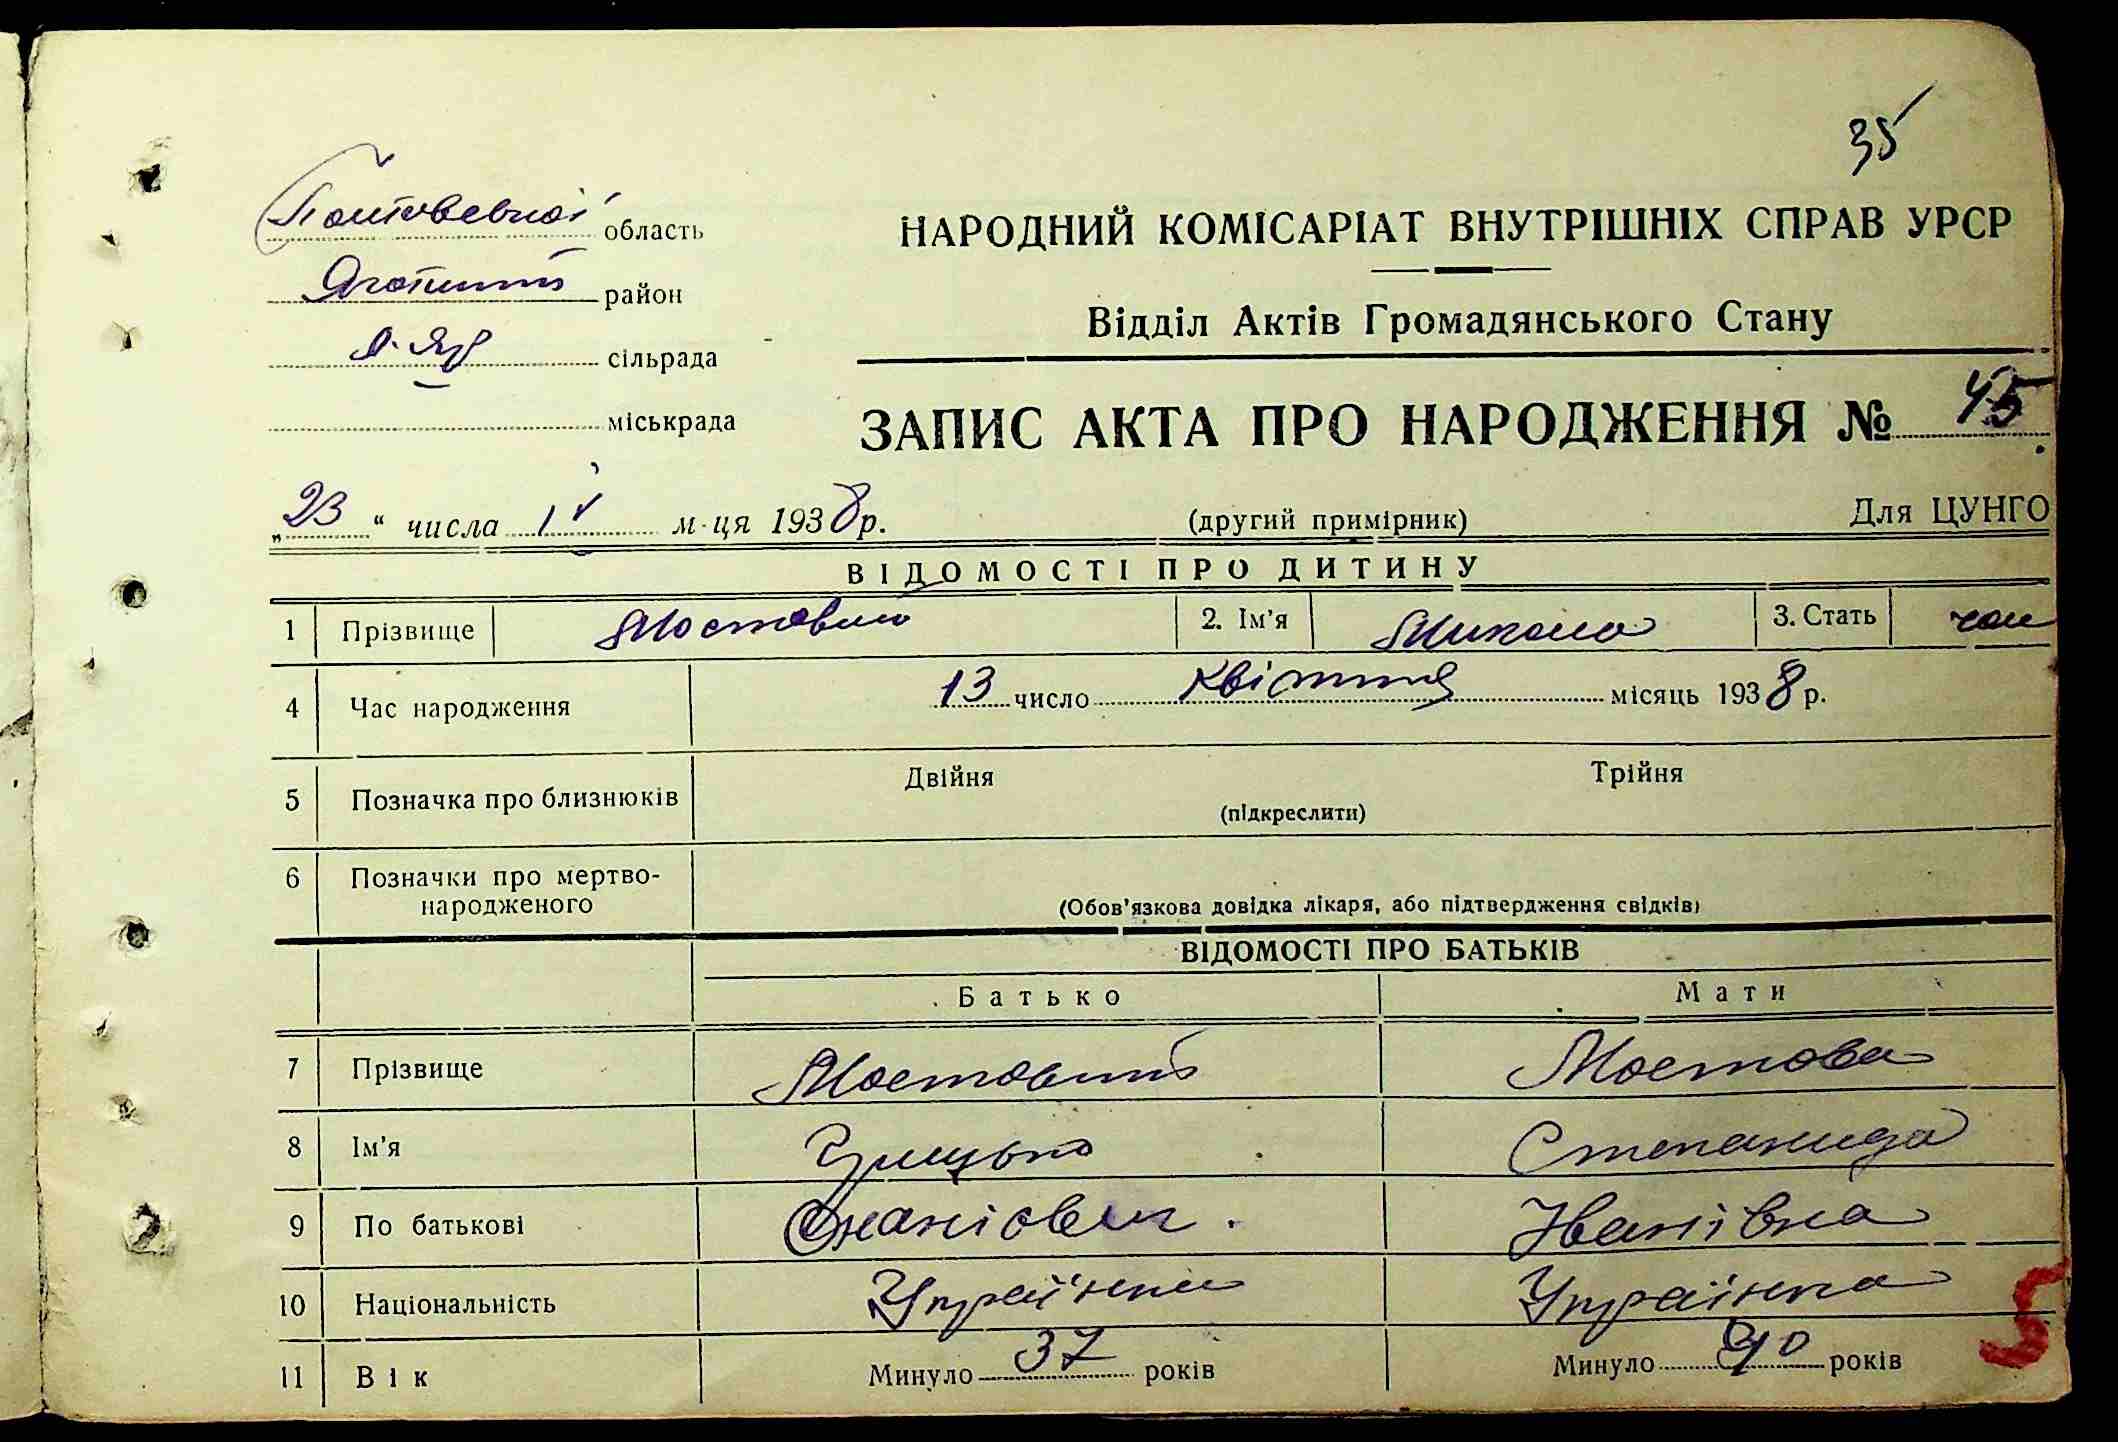 35
Полтавської область
НАРОДНИЙ КОМІСАРІАТ ВНУТРІШНІХ СПРАВ УРСР
Яготинс район
Відділ Актів Громадянського Стану
сільрада
міськрада
ЗАПИС АКТА ПРО НАРОДЖЕННЯ № 45
„23“ числа IV м-ця 1938 р.
(другий примірник)
Для ЦУНГО
ВІДОМОСТІ ПРО ДИТИНУ
1 Прізвище Мостовий 2. Ім'я Микола 3. Стать чол
4 Час народження 13 число квітня місяць 1938 р.
5 Позначка про близнюків Двійня Трійня
(підкреслити)
6 Позначки про мертво-
народженого (Обов'язкова довідка лікаря, або підтвердження свідків)
ВІДОМОСТІ ПРО БАТЬКІВ
Батько Мати
7 Прізвище Мостовий Мостова
8 Ім'я Грицько Степанида
9 По батькові Івановна
10 Національність Українец Українка
11 Вік Минуло 37 років Минуло 40 років